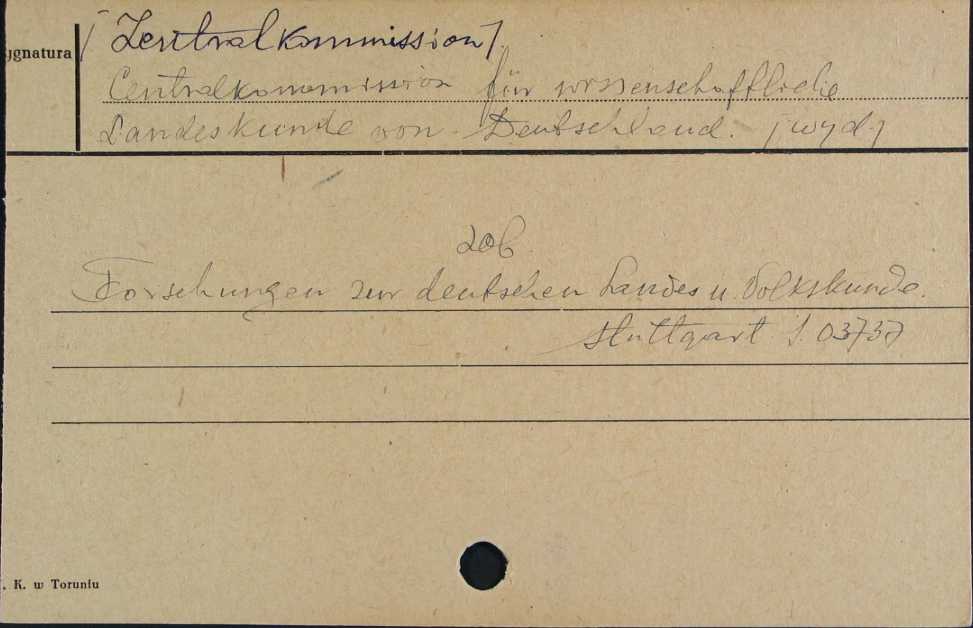 [Zentralkommission]
ygnatura
Centralkommission für wissenschaftliche
Landeskunde von Deutschland. [wyd.]
zob.
Forschungen zur deutschen Landes u. Volkskunde.
Stuttgart S. 03737
. K. w Toruniu